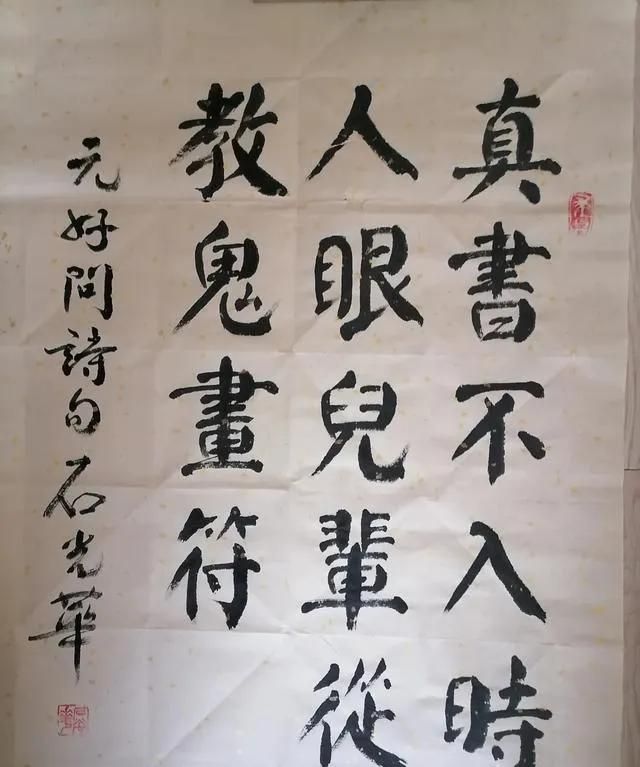 真書不入時
人眼兒輩從
教鬼畫符
元好問詩句石光華